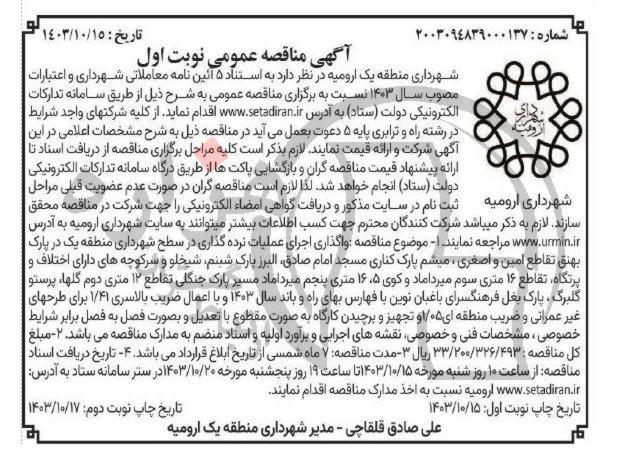 شماره : ۲۰۰۳۰۹۴۸۳۹۰۰۰۱۳۷
تاریخ : ۱۴۰۳/۱۰/۱۵
آگهی مناقصه عمومی نوبت اول
شهرداری منطقه یک ارومیه در نظر دارد به استناد ۵ آئین نامه معاملاتی شهرداری و اعتبارات
مصوب سال ۱۴۰۳ نسبت به برگزاری مناقصه عمومی به شرح ذیل از طریق سامانه تدارکات
الکترونیکی دولت (ستاد) به آدرس www.setadiran.ir اقدام نماید. از کلیه شرکتهای واجد شرایط
در رشته راه و ترابری پایه ۵ دعوت بعمل می آید در مناقصه ذیل به شرح مشخصات اعلامی در این
آگهی شرکت و ارائه قیمت نمایند. لازم بذکر است کلیه مراحل برگزاری مناقصه از دریافت اسناد تا
ارائه پیشنهاد قیمت مناقصه گران و بازگشایی پاکت ها از طریق درگاه سامانه تدارکات الکترونیکی
دولت (ستاد) انجام خواهد شد. لذا لازم است مناقصه گران در صورت عدم عضویت قبلی مراحل
ثبت نام در سایت مذکور و دریافت گواهی امضاء الکترونیکی را جهت شرکت در مناقصه محقق
شهرداری ارومیه
سازند. لازم به ذکر میباشد شرکت کنندگان محترم جهت کسب اطلاعات بیشتر میتوانند به سایت شهرداری ارومیه به آدرس
www.urmin.ir مراجعه نمایند. ۱- موضوع مناقصه :واگذاری اجرای عملیات نرده گذاری در سطح شهرداری منطقه یک در پارک
بهنق تقاطع امین و اصغری ، میشم پارک کناری مسجد امام صادق، البرز پارک شبنم، شیخلو و سرکوچه های دارای اختلاف و
پرتگاه، تقاطع ۱۶ متری سوم میرداماد و کوی ۵، ۱۶ متری پنجم میرداماد مسیر پارک جنگلی تقاطع ۱۲ متری دوم گلها، پرستو
گلبرگ، پارک بغل فرهنگسرای باغبان نوین با فهارس بهای راه و باند سال ۱۴۰۳ و با اعمال ضریب بالاسری ۱/۴۱ برای طرحهای
غیر عمرانی و ضریب منطقه ای۱/۰۵و تجهیز و برچیدن کارگاه به صورت مقطوع با تعدیل و بصورت فصل به فصل برابر شرایط
خصوصی ، مشخصات فنی و خصوصی، نقشه های اجرایی و برآورد اولیه و اسناد منضم به مدارک مناقصه می باشد. ۲-مبلغ
کل مناقصه : ۳۳/۲۰۰/۳۲۶/۴۹۳ ریال ۳-مدت مناقصه: ۷ ماه شمسی از تاریخ ابلاغ قرارداد می باشد. ۴- تاریخ دریافت اسناد
مناقصه: از ساعت ۱۰ روز شنبه مورخه ۱۴۰۳/۱۰/۱۵تا ساعت ۱۹ روز پنجشنبه مورخه ۱۴۰۳/۱۰/۲۰در ستر سامانه ستاد به آدرس:
www.setadiran.ir ارومیه نسبت به اخذ مدارک مناقصه اقدام نمایند.
تاریخ چاپ نوبت اول: ۱۴۰۳/۱۰/۱۵
تاریخ چاپ نوبت دوم: ۱۴۰۳/۱۰/۱۷
علی صادق قلقاچی - مدیر شهرداری منطقه یک ارومیه